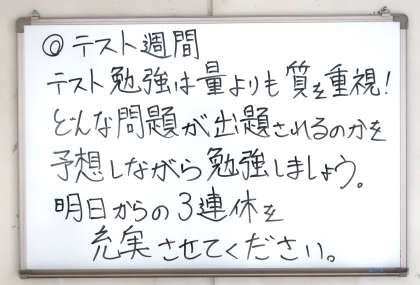 ◎テスト週間
テスト勉強は量よりも質を重視!
どんな問題が出題されるのかを
予想しながら勉強しましょう。
明日からの3連休を
充実させてください。